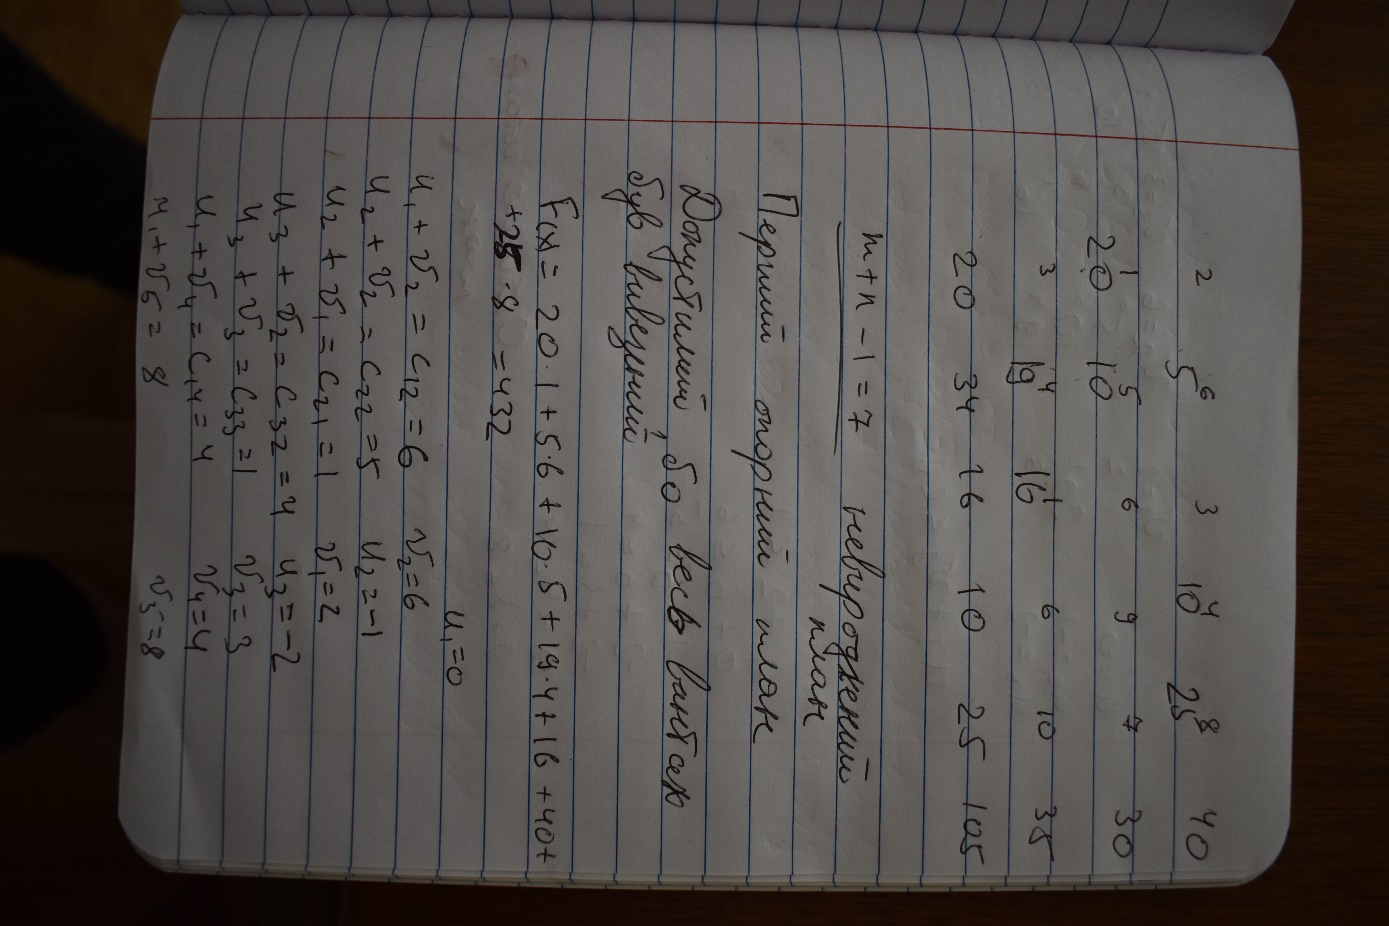 2 6 3 4 8 40
5 10 25
1 5 6 9 7 30
20 10
3 4 1 6 10 35
19 16
20 34 16 10 25 105
m+n-1=7 невироджений
план
Перший опорний план
Допустимий, бо весь вантаж
був вивезений
F(x) = 20·1+5·6+10·5+19·4+16+40+
+25·8=432
u₁=0
u₁+v₂=c₁₂=6 v₂=6
u₂+v₂=c₂₂=5 u₂=-1
u₂+v₁=c₂₁=1 v₁=2
u₃+v₂=c₃₂=4 u₃=-2
u₃+v₃=c₃₃=1 v₃=3
u₁+v₄=c₁₄=4 v₄=4
u₁+v₅=8 v₅=8